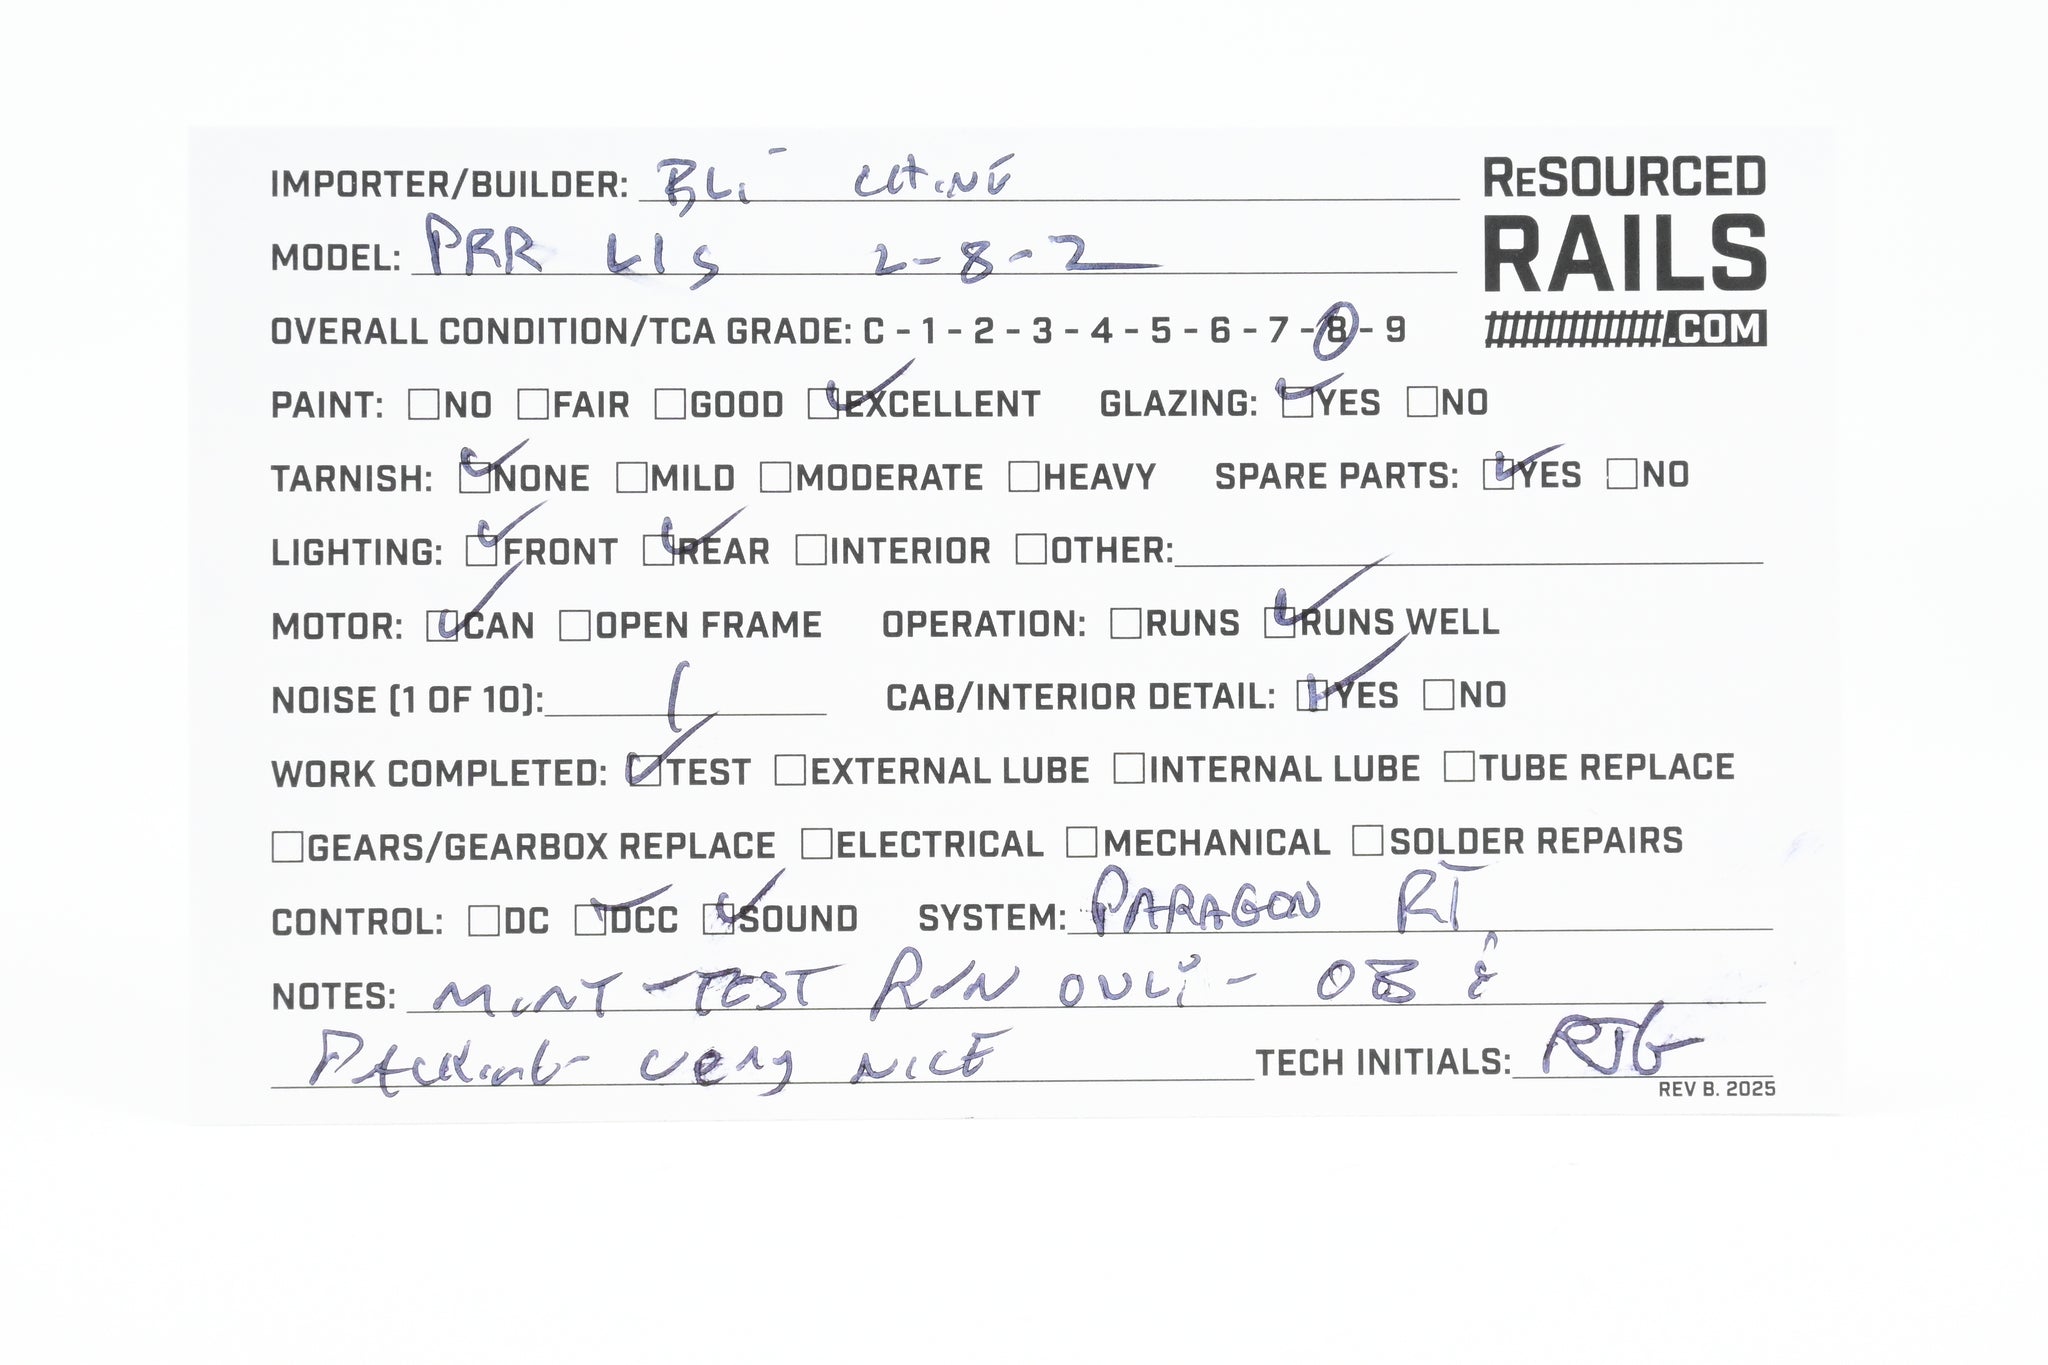 IMPORTER/BUILDER: BLI - CHINE
MODEL: PRR L1s 2-8-2
OVERALL CONDITION/TCA GRADE: C - 1 - 2 - 3 - 4 - 5 - 6 - 7 - 8 - 9
ReSOURCED
RAILS
.COM
PAINT: NO FAIR GOOD EXCELLENT GLAZING: YES NO
TARNISH: NONE MILD MODERATE HEAVY SPARE PARTS: YES NO
LIGHTING: FRONT REAR INTERIOR OTHER:
MOTOR: CAN OPEN FRAME OPERATION: RUNS RUNS WELL
NOISE (1 OF 10): 1 CAB/INTERIOR DETAIL: YES NO
WORK COMPLETED: TEST EXTERNAL LUBE INTERNAL LUBE TUBE REPLACE
GEARS/GEARBOX REPLACE ELECTRICAL MECHANICAL SOLDER REPAIRS
CONTROL: DC DCC SOUND SYSTEM: PARAGON
NOTES: MINT - TEST RUN - OB &
PACKING very NICE TECH INITIALS: RJG
REV B. 2025